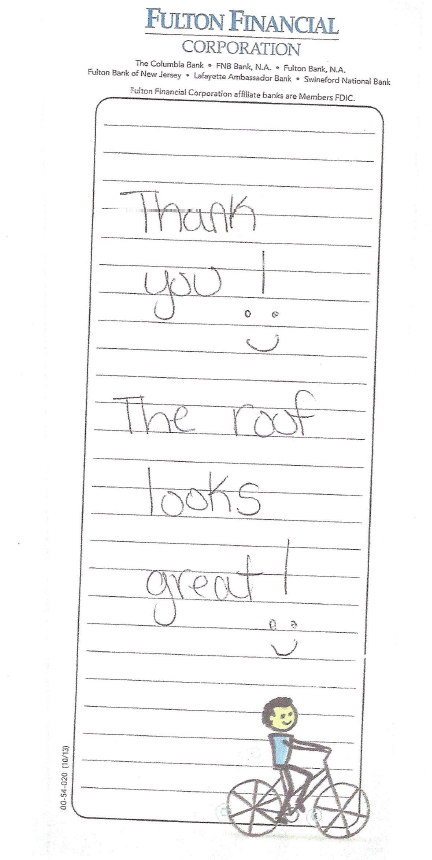 FULTON FINANCIAL
CORPORATION
The Columbia Bank • FNB Bank, N.A. • Fulton Bank, N.A.
Fulton Bank of New Jersey • Lafayette Ambassador Bank • Swineford National Bank
Fulton Financial Corporation affiliate banks are Members FDIC.
Thank
you!
The roof
looks
great!
00-54-020 (10/13)